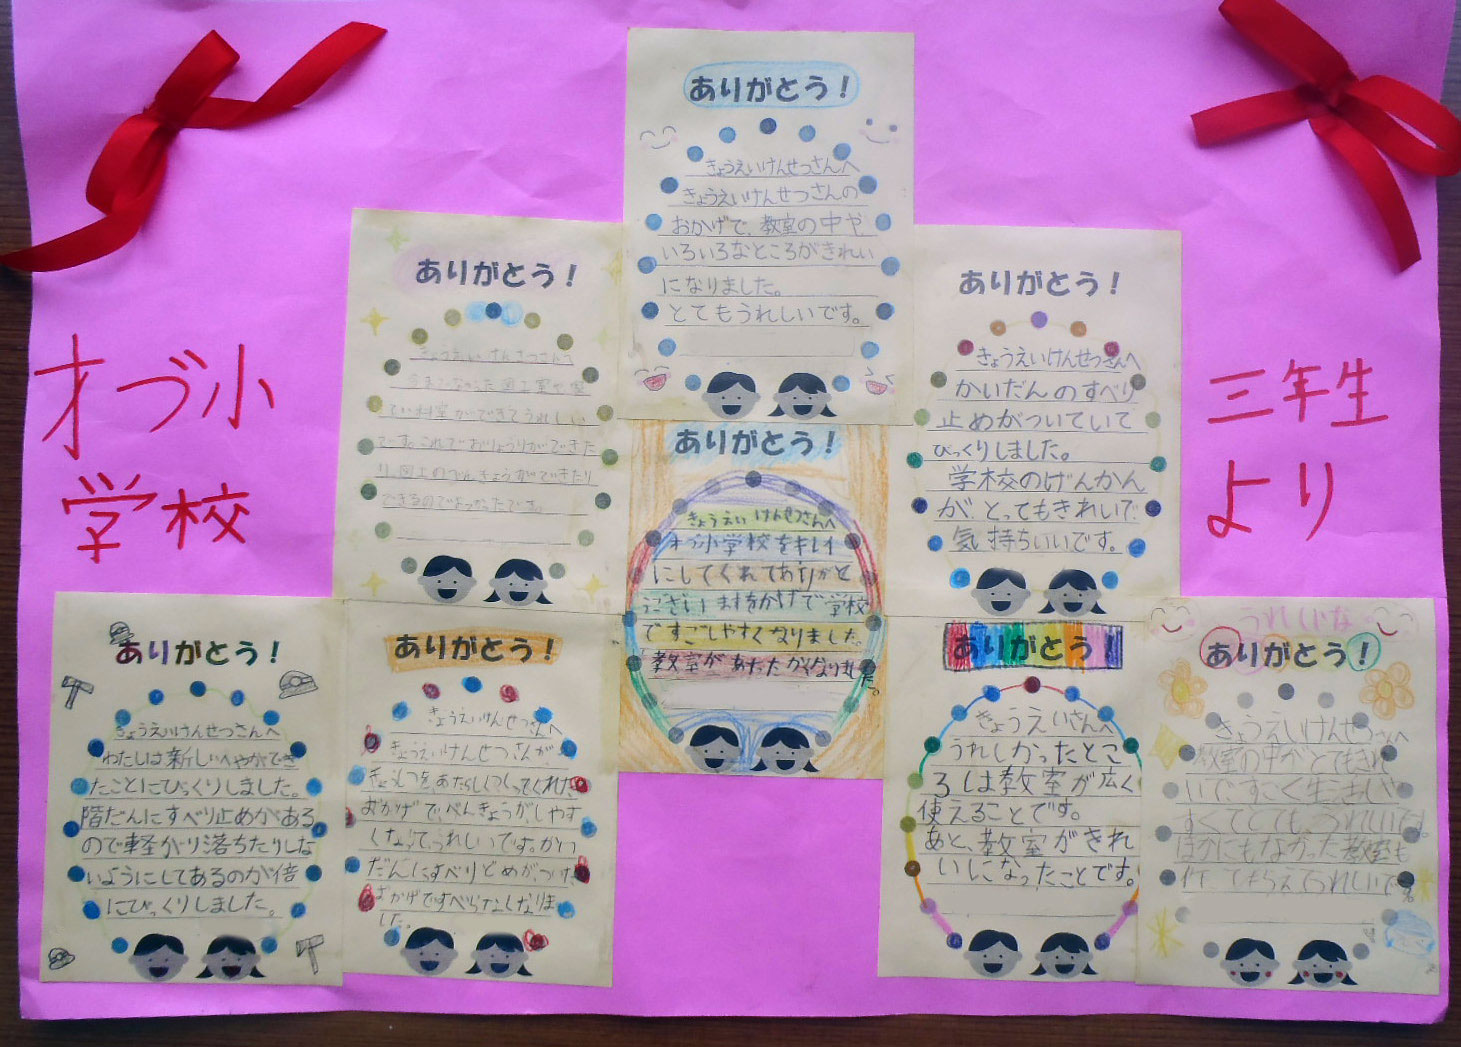 才づ小
学校
三年生
より
ありがとう！
きょうえいけんせつさんへ
きょうえいけんせつさんの
おかげで、教室の中や
いろいろなところがきれい
になりました。
とてもうれしいです。
ありがとう！
きょうえいけんせつさんへ
今までなかった図工室や家
てい科室ができてうれしい
です。これでおりょうりができた
り、図工のべんきょうができたり
できるのでよかったです。
ありがとう！
きょうえいけんせつさんへ
かいだんのすべり
止めがついていて
びっくりしました。
学校のげんかん
が、とってもきれいで
気持ちいいです。
ありがとう！
きょうえいけんせつさんへ
才づ小学校をキレイ
にしてくれてありがと
うございますおかげで学校
ですごしやすくなりました
教室があたたかくなりました。
ありがとう！
きょうえいけんせつさんへ
わたしは新しいへやができ
たことにびっくりしました。
階だんにすべり止めがある
ので軽かり落ちたりしな
いようにしてあるのが倍
にびっくりしました。
ありがとう！
きょうえいけんせつさんへ
きょうえいけんせつさんが、
きょしつをあたらしくつくってくれた
おかげで、べんきょうがしやす
くなって、うれしいです。かい
だんにすべりどめがついた
おかげですべらなくなりま
した。
ありがとう！
きょうえいさんへ
うれしかったとこ
ろは教室が広く
使えることです。
あと、教室がきれ
いになったことです。
うれしいな
ありがとう！
きょうえいけんせつさんへ
教室の中がとてもきれ
いですごく生活し
すくてとても、うれしいです。
ほかにもなかった教室も
作ってもらえてうれしいです。